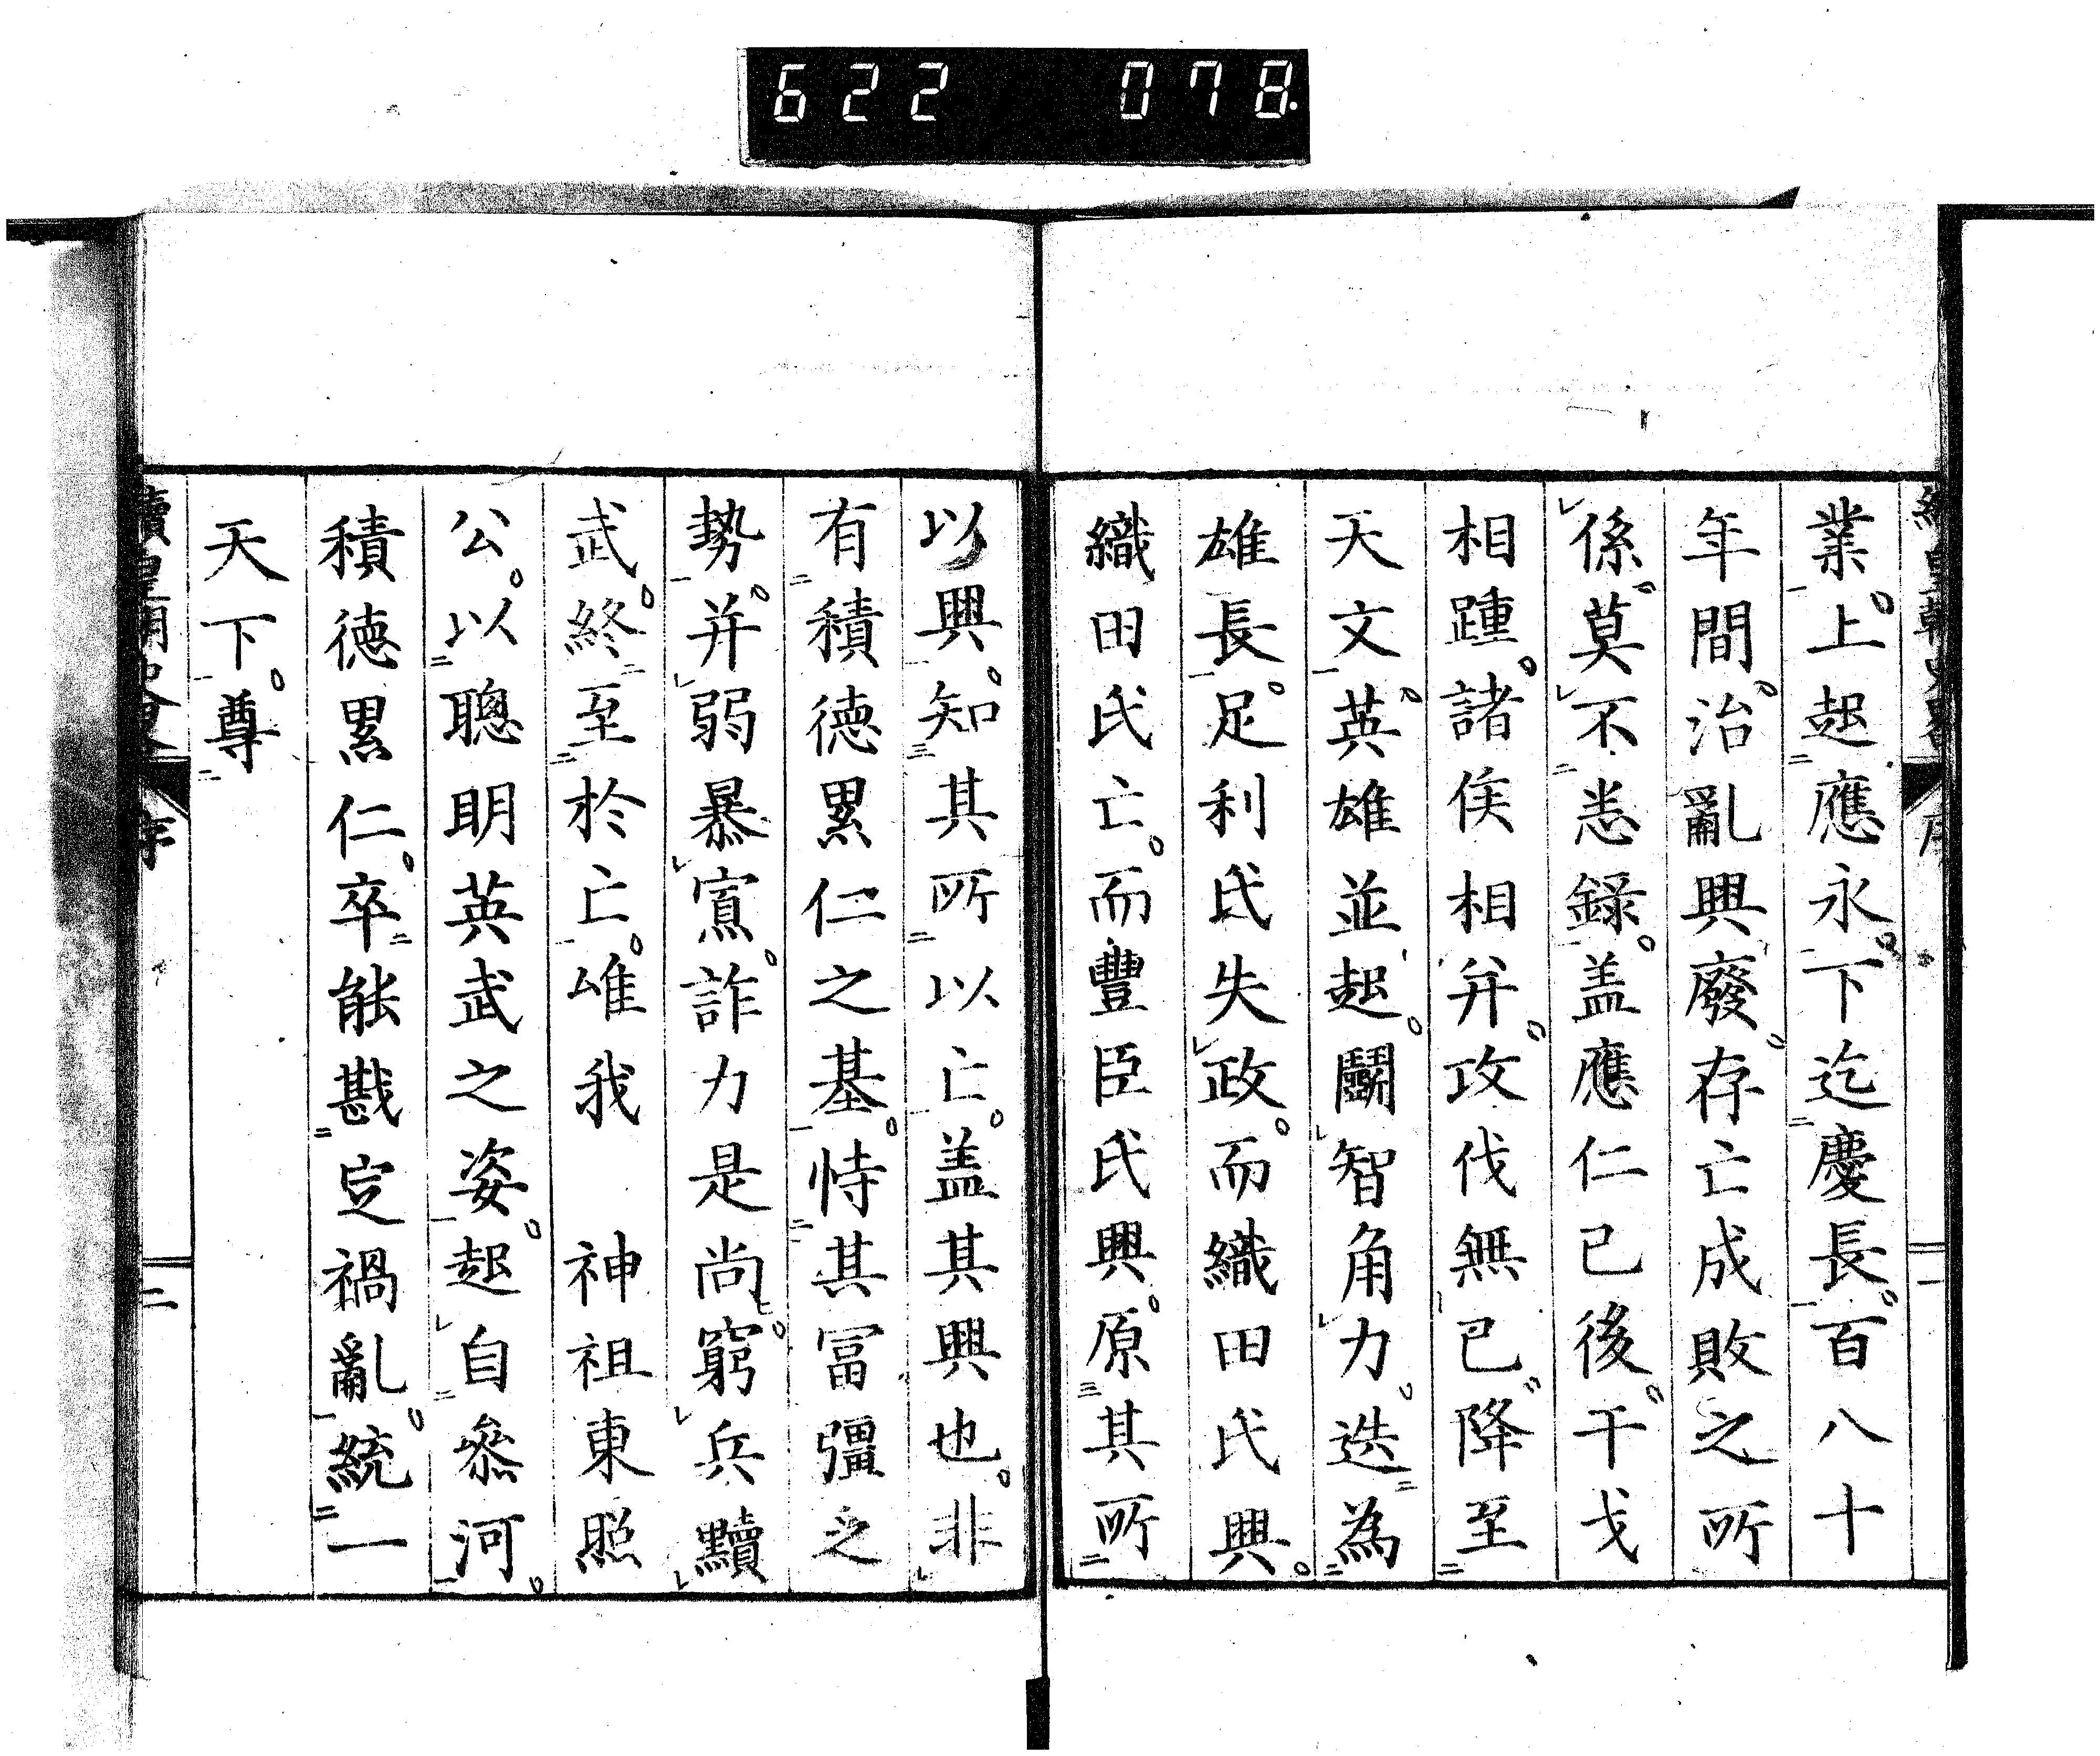 622 078
業上起應永下迄慶長百八十
年間治亂興廢存亡成敗之所
係莫不悉録盖應仁已後干戈
相踵諸侯相并攻伐無已降至
天文英雄並起鬭智角力迭為
雄長足利氏失政而織田氏興
織田氏亡而豐臣氏興原其所
以興知其所以亡盖其興也非
有積德累仁之基恃其冨彊之
勢并弱暴寡詐力是尚窮兵黷
武終至於亡唯我　神祖東照
公以聰明英武之姿起自叅河
積德累仁卒能戡定禍亂統一
天下尊
序
二